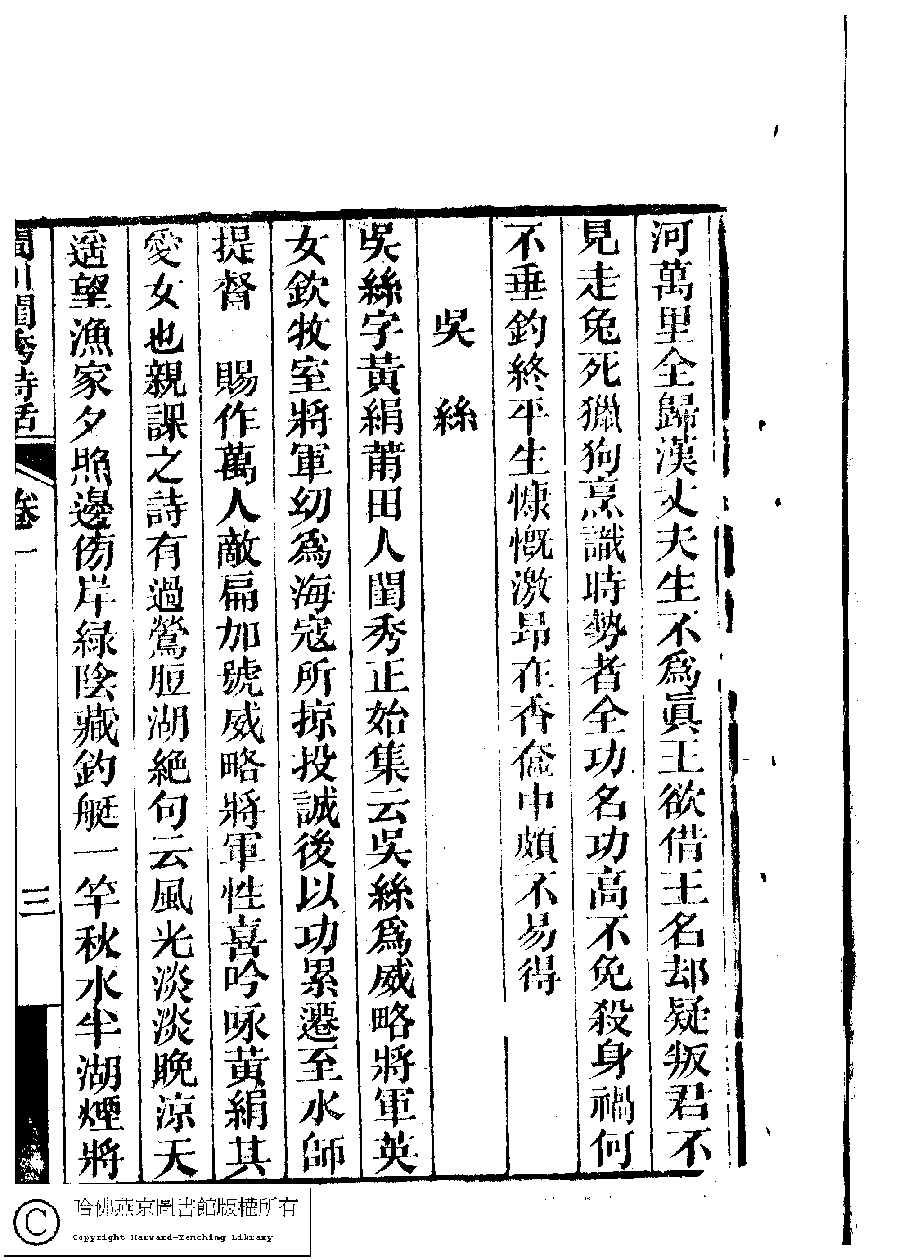 河萬里全歸漢丈夫生不爲眞王欲借王名却疑叛君不
見走兔死獵狗烹識時勢者全功名功高不免殺身禍何
不垂釣終平生慷慨激昂在香奩中頗不易得
吳絲
吳絲字黃絹莆田人閨秀正始集云吳絲爲威略將軍英
女欽牧室將軍幼爲海寇所掠投誠後以功累遷至水師
提督 賜作萬人敵扁加號威略將軍性喜吟咏黃絹其
愛女也親課之詩有過鶯脰湖絕句云風光淡淡晚涼天
遥望漁家夕照邊傍岸綠陰藏釣艇一竿秋水半湖煙將
閨秀詩話
卷一
三
哈佛燕京圖書館版權所有
Copyright Harvard-Yenching Library